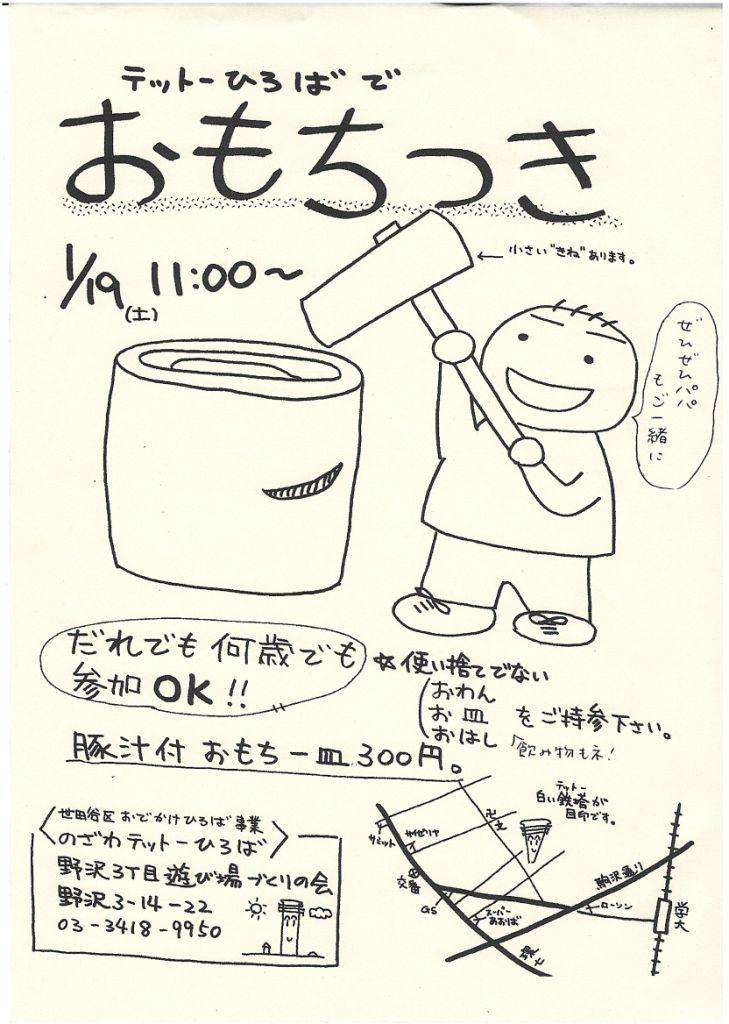 テットーひろばで
おもちつき
1/19 11:00〜
(土)
←小さい"きね"あります。
ぜひぜひパパ
もご一緒に
だれでも何歳でも
参加OK!!
☆使い捨てでない
おわん
お皿
おはし
をご持参下さい。
「飲み物もネ!
豚汁付 おもち一皿 300円。
世田谷区おでかけひろば事業
のざわテットーひろば
野沢3丁目遊び場づくりの会
野沢3-14-22
03-3418-9950
テットー
白い鉄塔が
目印です。
サミット
サイゼリヤ
卍
文
交番
GS
スーパー
あおば
環七
駒沢通り
ローソン
学大